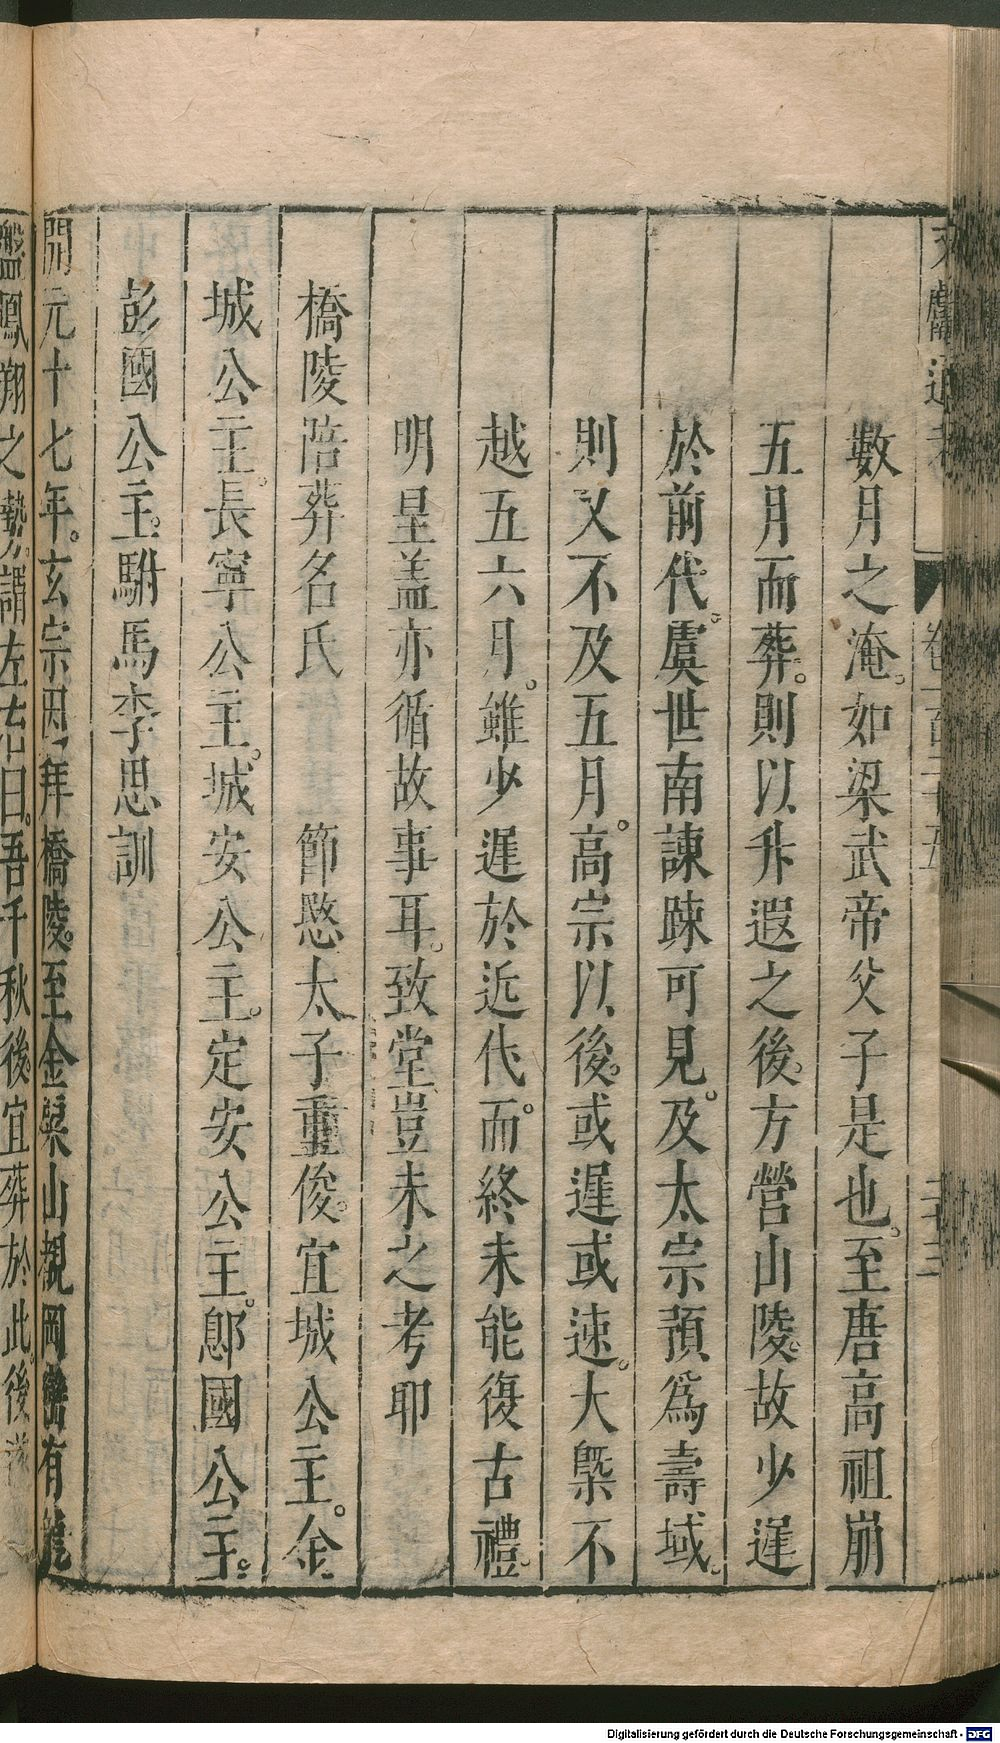 文獻通考 卷一百二十五 二十三
數月之淹。如梁武帝父子是也。至唐高祖崩
五月而葬。則以升遐之後。方營山陵。故少遲
於前代。虞世南諫踈可見。及太宗預爲壽域。
則又不及五月。高宗以後。或遲或速。大槩不
越五六月。雖少遲於近代。而終未能復古禮。
明皇盖亦循故事耳。致堂豈未之考耶
橋陵陪葬名氏 節愍太子重俊。宜城公主。金
城公主。長寧公主。城安公主。定安公主。鄎國公主。
彭國公主。駙馬李思訓
開元十七年。玄宗因拜橋陵。至金粟山。覩岡巒有龍
盤鳳翔之勢。謂左右曰。吾千秋後。宜葬於此。後遂
Digitalisierung gefördert durch die Deutsche Forschungsgemeinschaft - DFG